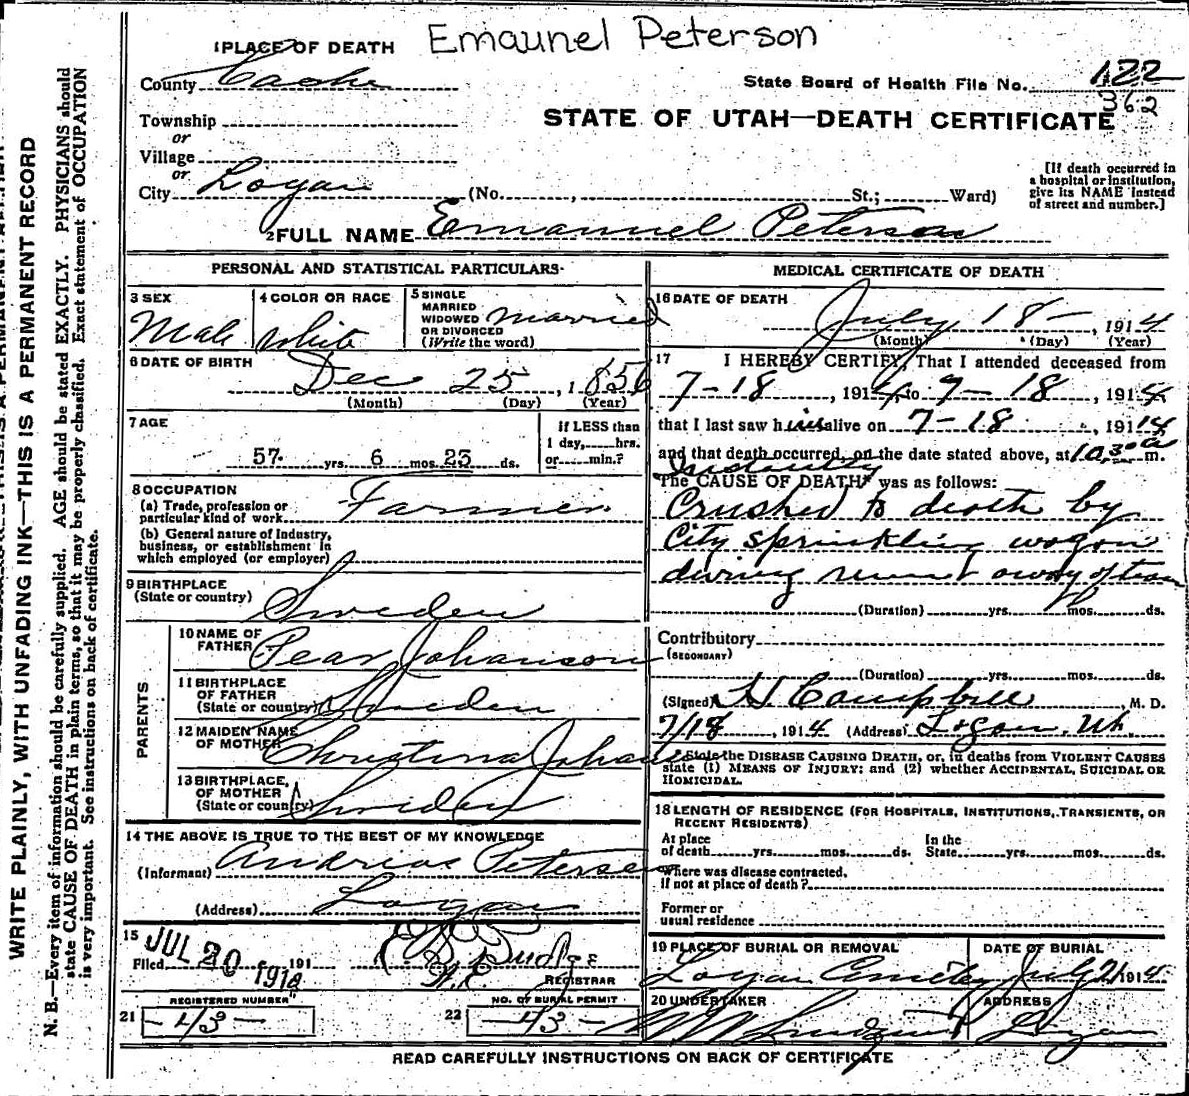 Emaunel Peterson
1 PLACE OF DEATH
County Cache
State Board of Health File No. 122
362
STATE OF UTAH—DEATH CERTIFICATE
Township
or
Village
or
City Logan (No. , St.; Ward)
[If death occurred in
a hospital or institution,
give its NAME instead
of street and number.]
2 FULL NAME Emanuel Peterson
PERSONAL AND STATISTICAL PARTICULARS
3 SEX
Male
4 COLOR OR RACE
White
5 SINGLE
MARRIED
WIDOWED
OR DIVORCED
(Write the word)
Married
6 DATE OF BIRTH
Dec 25, 1856
(Month) (Day) (Year)
7 AGE
57 yrs. 6 mos. 23 ds.
If LESS than
1 day, hrs.
or min.?
8 OCCUPATION
(a) Trade, profession or
particular kind of work Farmer
(b) General nature of Industry,
business, or establishment in
which employed (or employer)
9 BIRTHPLACE
(State or country)
Sweden
PARENTS
10 NAME OF
FATHER
Pear Johanson
11 BIRTHPLACE
OF FATHER
(State or country)
Sweden
12 MAIDEN NAME
OF MOTHER
Christina
13 BIRTHPLACE
OF MOTHER
(State or country)
Sweden
14 THE ABOVE IS TRUE TO THE BEST OF MY KNOWLEDGE
(Informant) Andrias Peterson
(Address) Logan
15
Filed JUL 20 191
REGISTRAR
21 REGISTERED NUMBER
22 NO. OF BURIAL PERMIT
MEDICAL CERTIFICATE OF DEATH
16 DATE OF DEATH
July 18, 1914
(Month) (Day) (Year)
17 I HEREBY CERTIFY, That I attended deceased from
7-18, 1914, to 7-18, 1914,
that I last saw him alive on 7-18, 1914
and that death occurred, on the date stated above, at 10.30 a m.
The CAUSE OF DEATH* was as follows:
Instantly
Crushed to death by
City sprinkling wagon
during away of team
(Duration) yrs. mos. ds.
Contributory
(SECONDARY)
(Duration) yrs. mos. ds.
(Signed) Campbell, M. D.
7/18, 1914 (Address) Logan, Ut.
* State the DISEASE CAUSING DEATH, or, in deaths from VIOLENT CAUSES
state (1) MEANS OF INJURY; and (2) whether ACCIDENTAL, SUICIDAL OR
HOMICIDAL.
18 LENGTH OF RESIDENCE (FOR HOSPITALS, INSTITUTIONS, TRANSIENTS, OR
RECENT RESIDENTS)
At place In the
of death yrs. mos. ds. State yrs. mos. ds.
Where was disease contracted,
if not at place of death?
Former or
usual residence
19 PLACE OF BURIAL OR REMOVAL
Logan Cemetery
DATE OF BURIAL
July 21 1914
20 UNDERTAKER
ADDRESS
Logan
READ CAREFULLY INSTRUCTIONS ON BACK OF CERTIFICATE
WRITE PLAINLY, WITH UNFADING INK—THIS IS A PERMANENT RECORD
N. B.—Every item of information should be carefully supplied. AGE should be stated EXACTLY. PHYSICIANS should
state CAUSE OF DEATH in plain terms, so that it may be properly classified. Exact statement of OCCUPATION
is very important. See instructions on back of certificate.